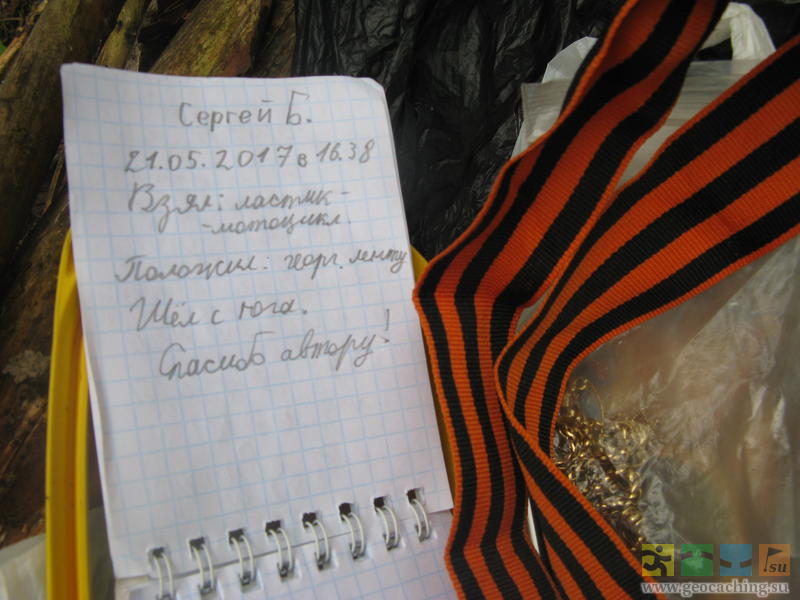 Сергей Б.
21.05.2017 в 16.38
Взял: ластик-
-мотоцикл.
Положил: георг. ленту
Шёл с юга.
Спасиб автору!
su
www.geocaching.su